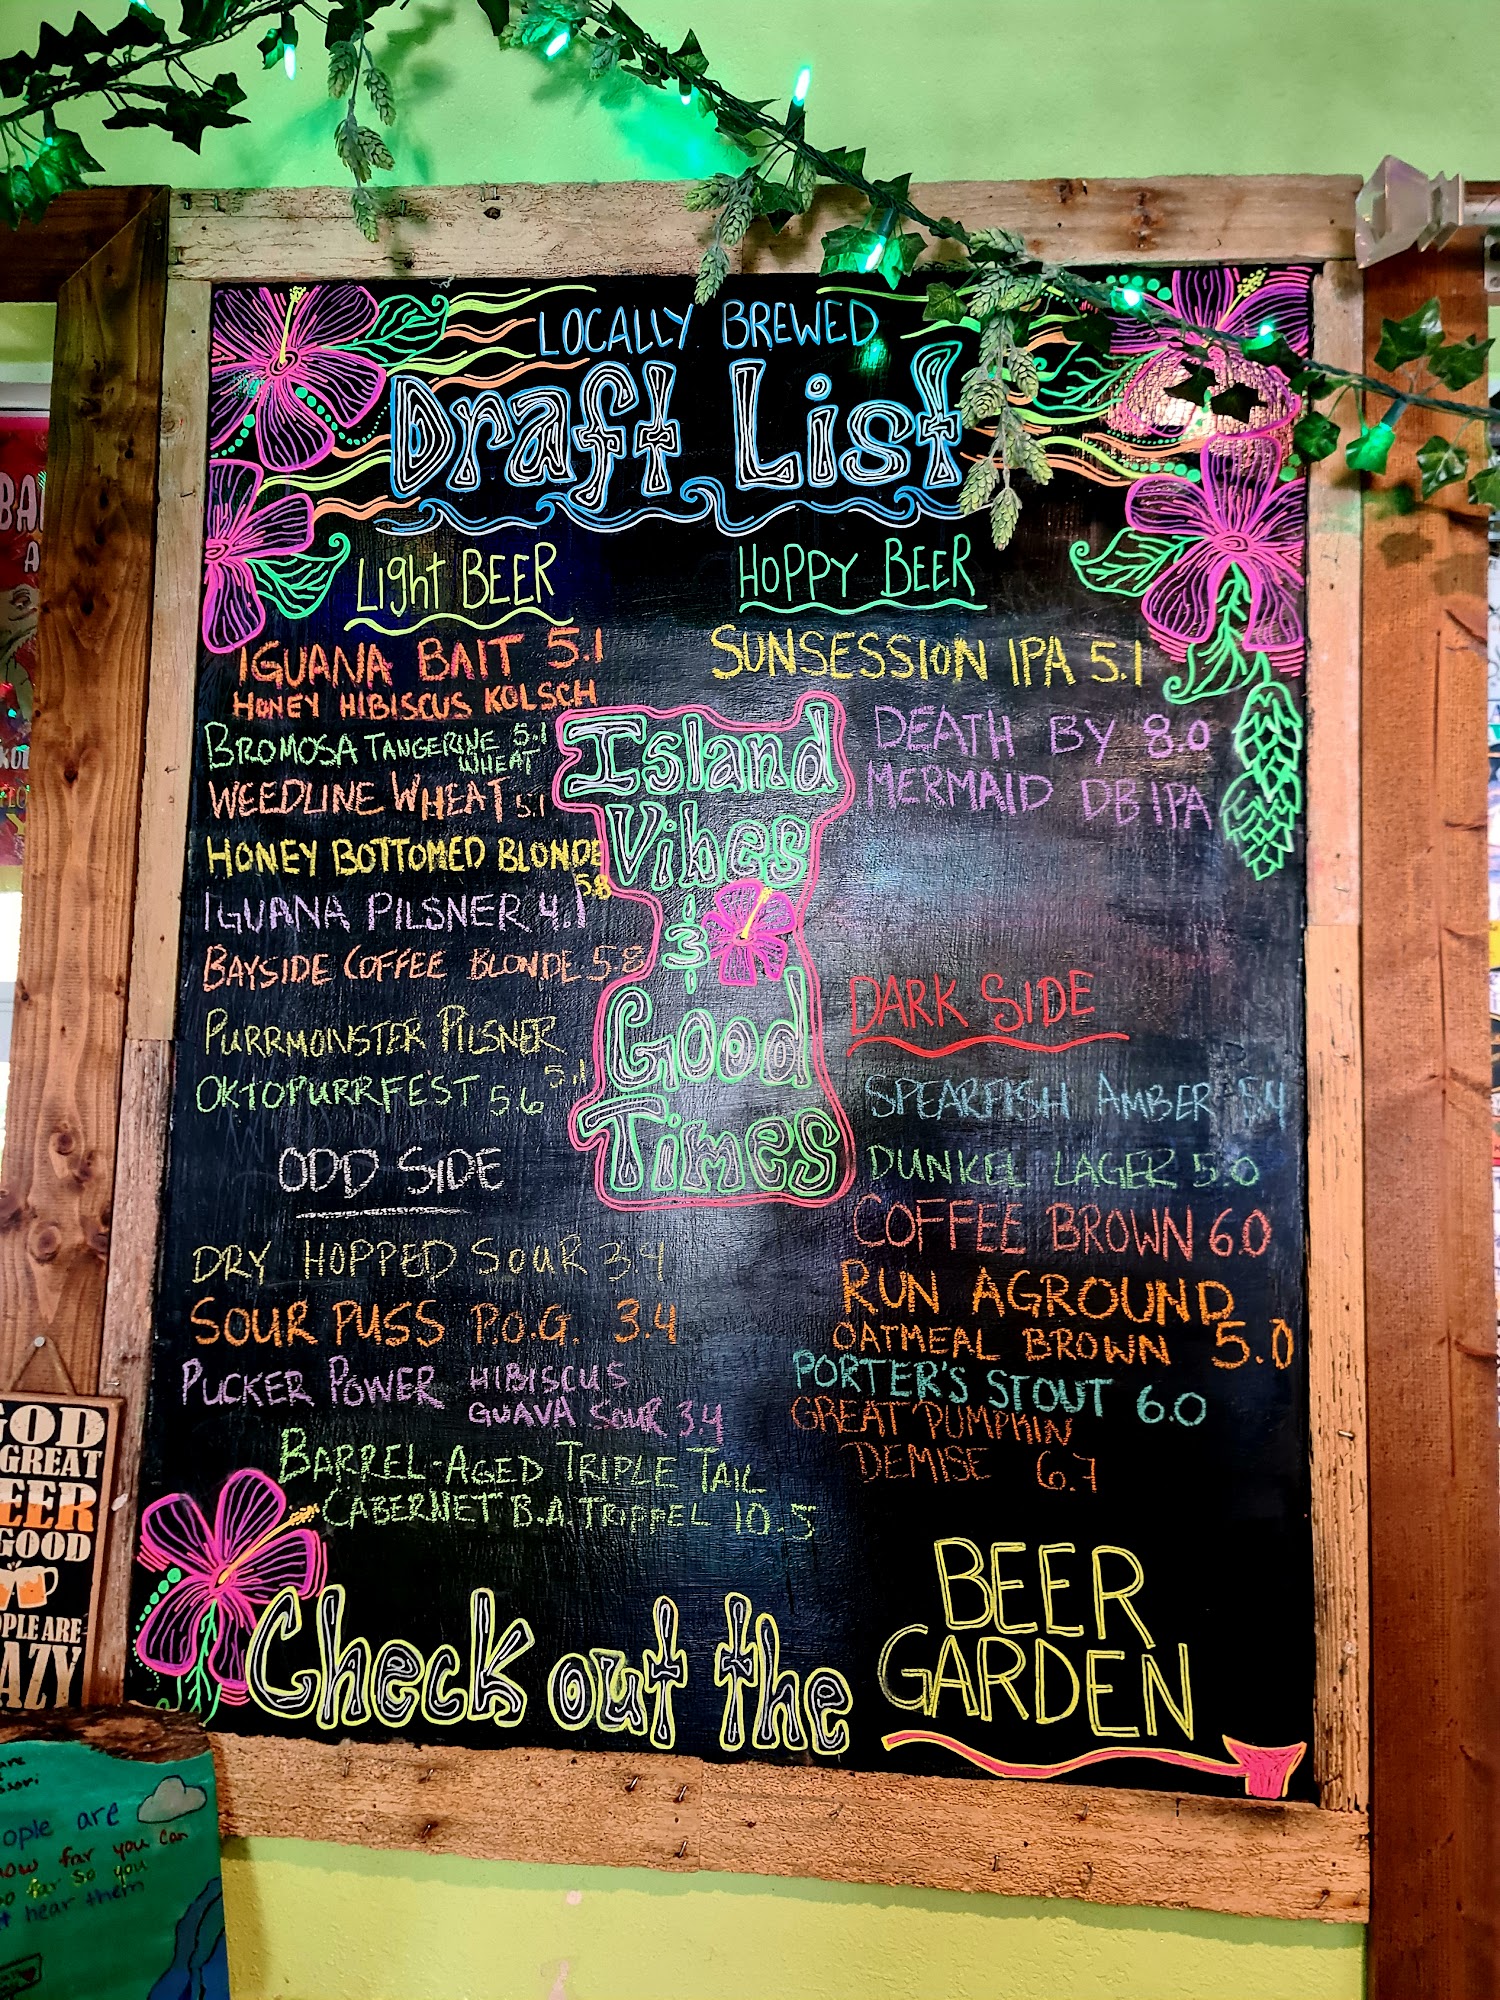 LOCALLY BREWED
Draft List
Light BEER
IGUANA BAIT 5.1
HONEY HIBISCUS KOLSCH
BROMOSA TANGERINE 5.1
WHEAT
WEEDLINE WHEAT 5.1
HONEY BOTTOMED BLONDE
5.8
IGUANA PILSNER 4.1
BAYSIDE COFFEE BLONDE 5.8
PURRMONSTER PILSNER
5.1
OKTOPURRFEST 5.6
ODD SIDE
DRY HOPPED SOUR 3.4
SOUR PUSS P.O.G. 3.4
PUCKER POWER HIBISCUS
GUAVA SOUR 3.4
BARREL-AGED TRIPLE TAIL
CABERNET B.A. TRIPPEL 10.5
Island
Vibes
&
Good
Times
HOPPY BEER
SUNSESSION IPA 5.1
DEATH BY 8.0
MERMAID DBIPA
DARK SIDE
SPEARFISH AMBER 5.4
DUNKEL LAGER 5.0
COFFEE BROWN 6.0
RUN AGROUND
OATMEAL BROWN 5.0
PORTER'S STOUT 6.0
GREAT PUMPKIN
DEMISE 6.7
Check out the BEER
GARDEN
GOD
GREAT
BEER
GOOD
OPLE ARE
AZY
ople are
how far you can
so far so you
t hear them